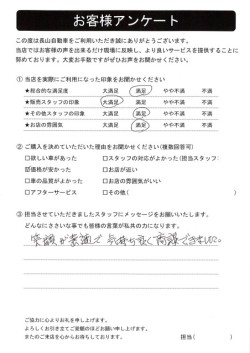 お客様アンケート
この度は長山自動車をご利用いただき誠にありがとうございます。
当店ではお客様の声を出来るだけ現場に反映し、より良いサービスを提供することに
努めております。大変お手数ですがぜひお声をお聞かせください。
① 当店を実際にご利用になった印象をお聞かせください
★総合的な満足度 大満足 満足 やや不満 不満
★販売スタッフの印象 大満足 満足 やや不満 不満
★その他スタッフの印象 大満足 満足 やや不満 不満
★お店の雰囲気 大満足 満足 やや不満 不満
② ご購入を決めていただいた理由をお聞かせください(複数回答可)
□欲しい車があった □スタッフの対応がよかった(担当スタッフ:
□価格が安かった □お店が近い
□車の品質がよかった □お店の雰囲気がいい
□アフターサービス □その他( )
③ 担当させていただきましたスタッフにメッセージをお願いいたします。
どんなにささいな事でも皆様の言葉が私共の力になります。
笑顔が素適で 気持ち良く商談できました。
ご協力に心よりお礼を申し上げます。
よろしくお引き立てご愛顧のほどお願い申し上げます。
またのご来店を心からお待ちしております。 担当( )